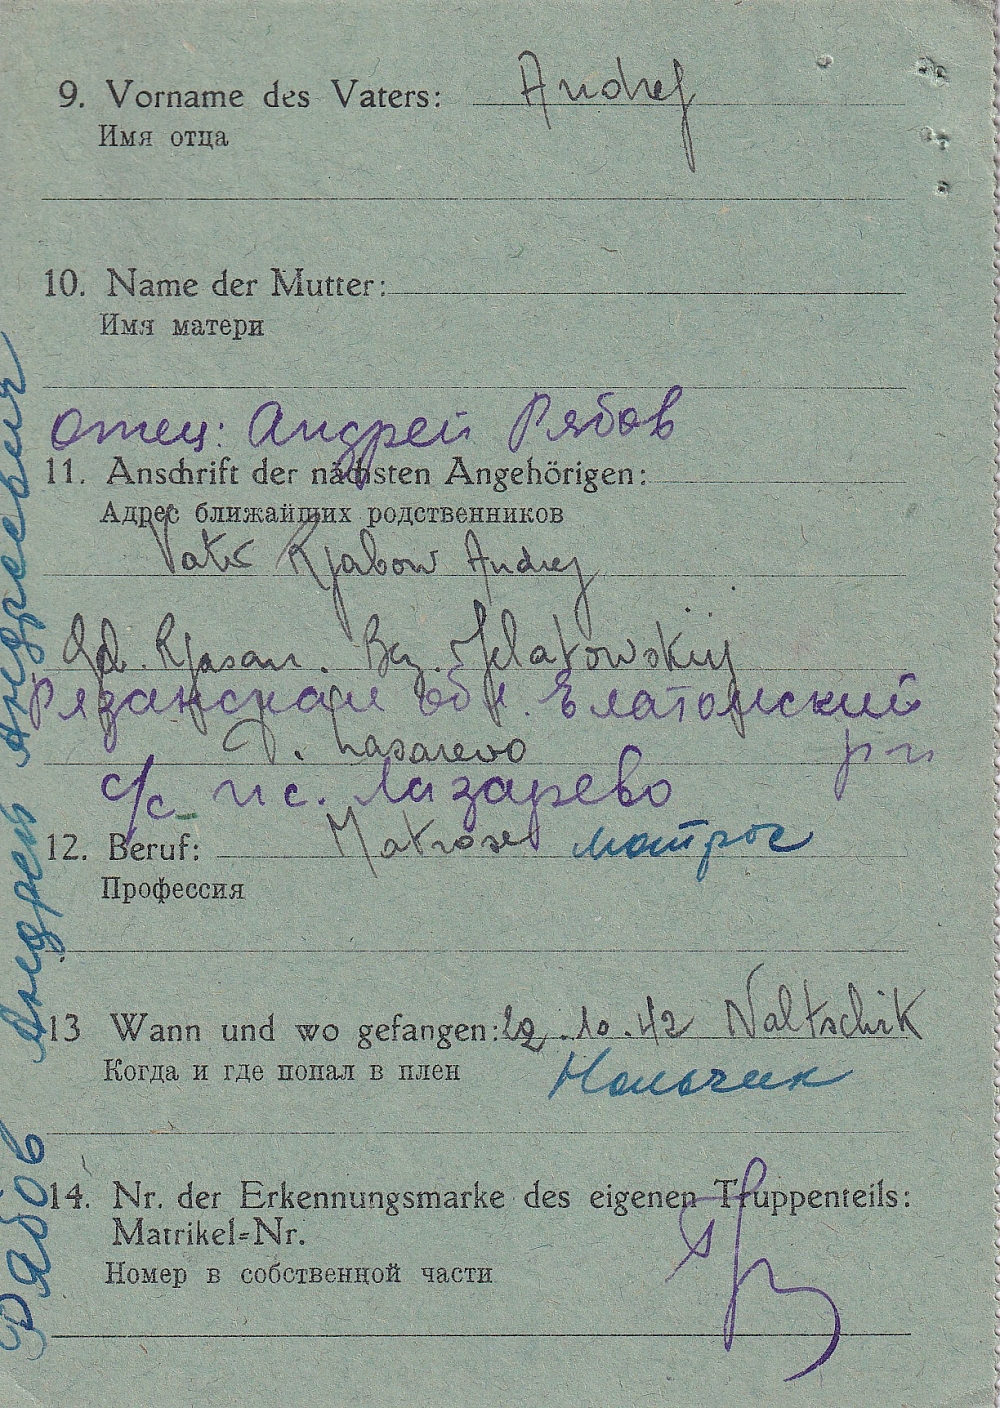 9. Vorname des Vaters: Andrej
Имя отца
10. Name der Mutter:
Имя матери
отец: Андрей Рябов
11. Anschrift der nächsten Angehörigen:
Адрес ближайших родственников
Rjabow Andrej
Rjasan. Bez. Jelatowskij
Рязанская обл. Елатомский
р-н
D. Lasarewo
с/с и с. Лазарево
12. Beruf: Matrose матрос
Профессия
13 Wann und wo gefangen: 22.10.42 Naltschik
Когда и где попал в плен Нальчик
14. Nr. der Erkennungsmarke des eigenen Truppenteils:
Matrikel-Nr.
Номер в собственной части
Рябов Андрей Андреевич